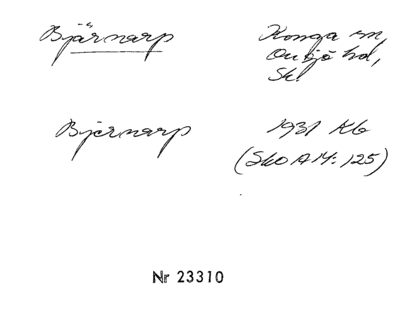 Bjärnarp Konga sn,
Onsjö hd,
Sk.
Bjärnarp 1931 Kb
(SkO AM: 125)
Nr 23310